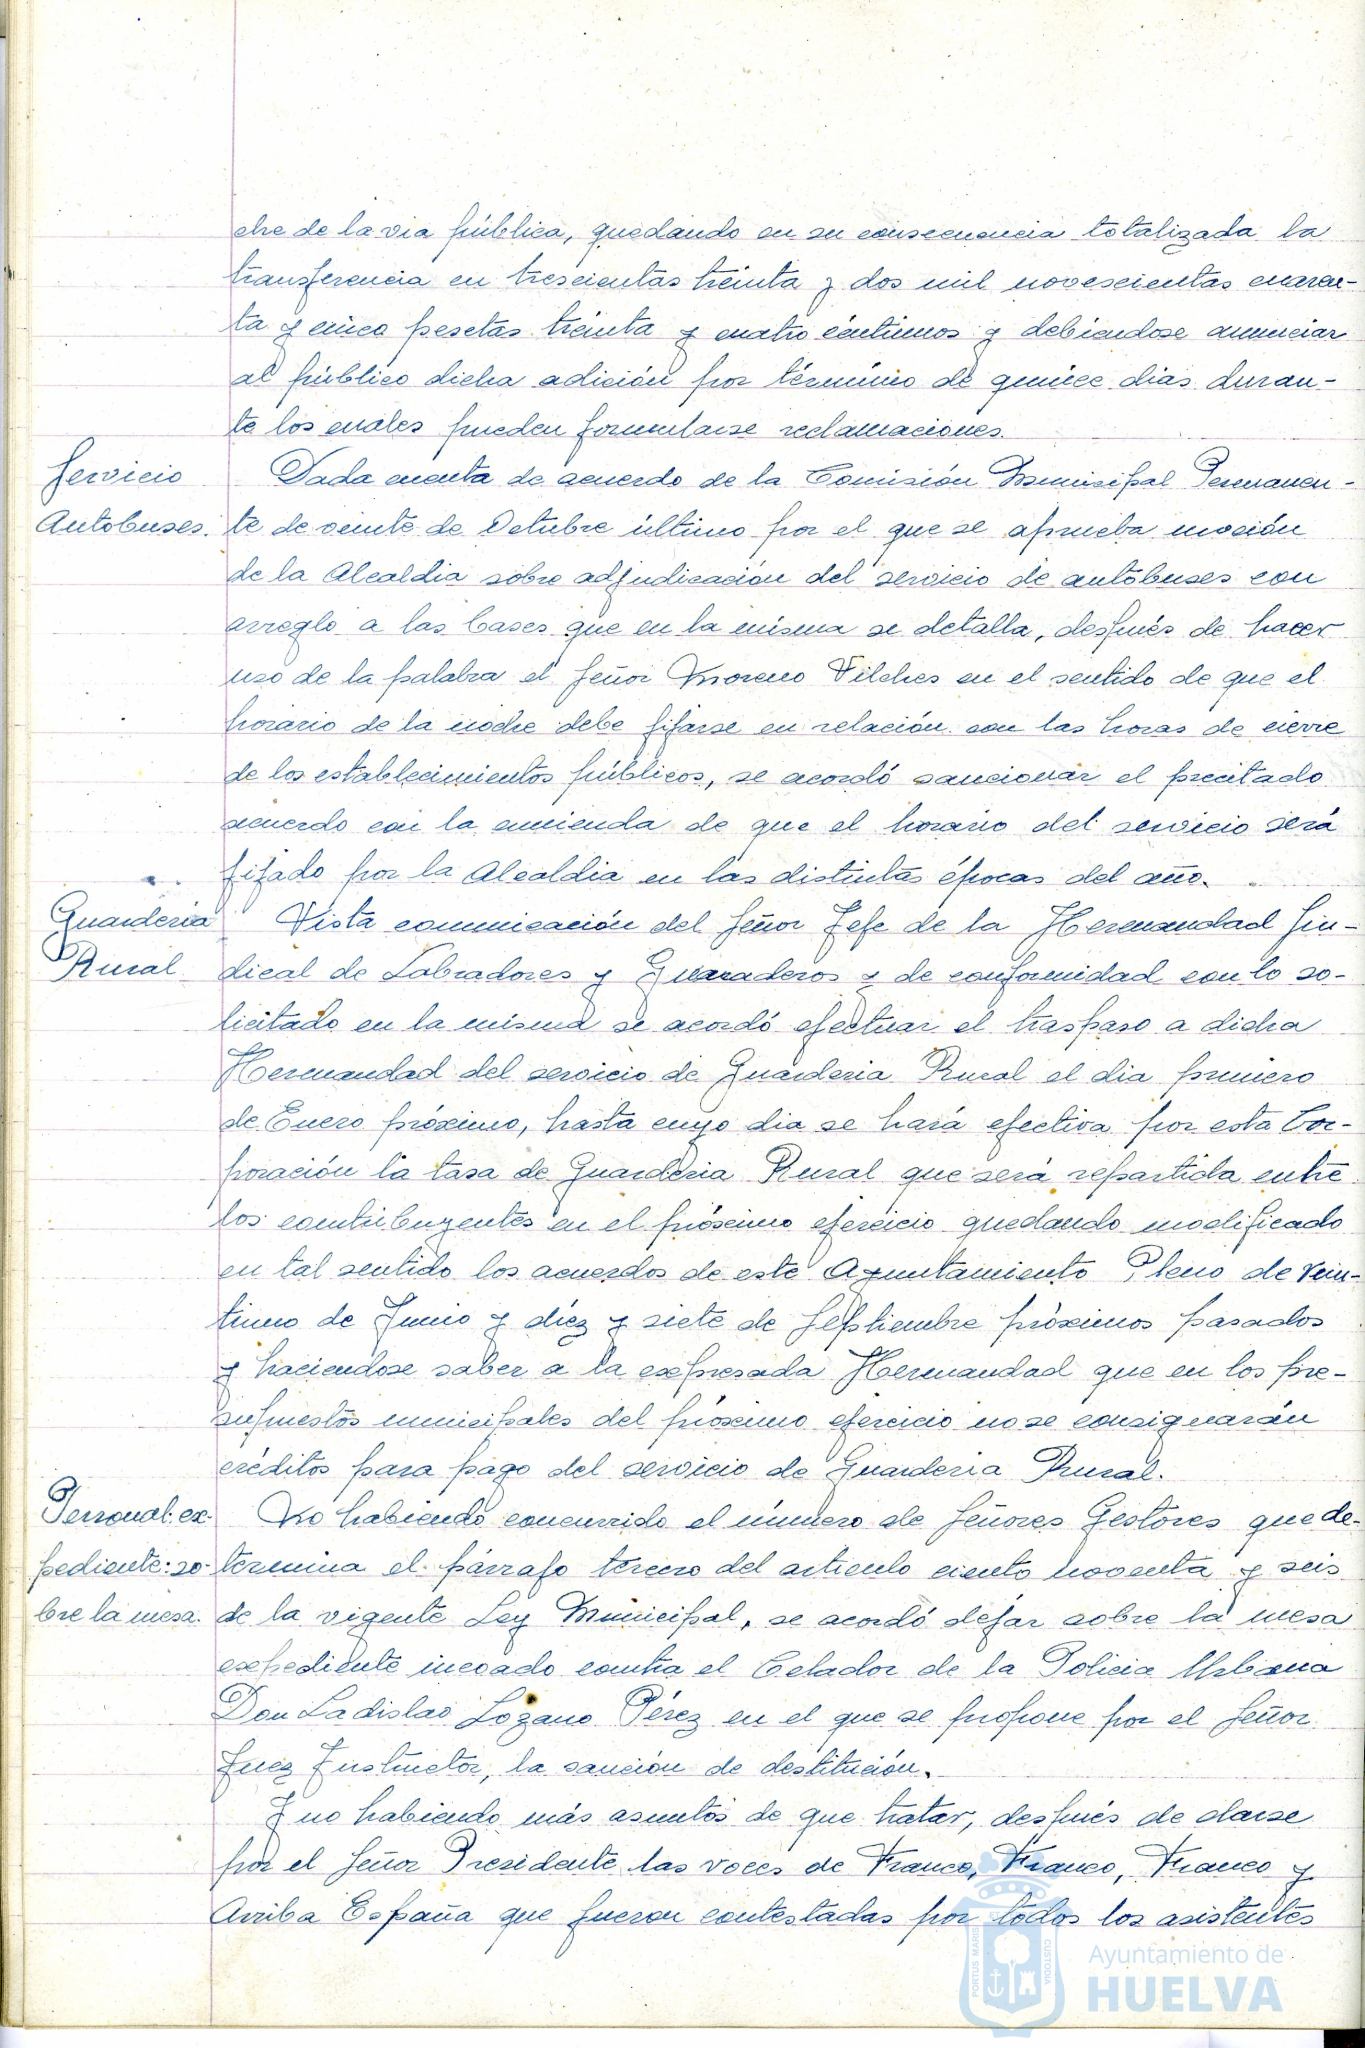 che de la via pública, quedando en su consecuencia totalizada la
transferencia en trescientas treinta y dos mil novescientas cuaren-
ta y cinco pesetas treinta y cuatro céntimos y debiéndose anunciar
al público dicha adición por término de quince dias duran-
te los cuales pueden formularse reclamaciones.
Servicio
Autobuses.
Dada cuenta de acuerdo de la Comisión Municipal Permanen-
te de veinte de Octubre último por el que se aprueba moción
de la Alcaldia sobre adjudicación del servicio de autobuses con
arreglo a las bases que en la misma se detalla, después de hacer
uso de la palabra el Señor Moreno Vilches en el sentido de que el
horario de la noche debe fijarse en relación con las horas de cierre
de los establecimientos públicos, se acordó sancionar el precitado
acuerdo con la enmienda de que el horario del servicio será
fijado por la Alcaldia en las distintas épocas del año.
Guarderia
Rural
Vista comunicación del Señor Jefe de la Hermandad Sin-
dical de Labradores y Ganaderos y de conformidad con lo so-
licitado en la misma se acordó efectuar el traspaso a dicha
Hermandad del servicio de Guarderia Rural el dia primero
de Enero próximo, hasta cuyo dia se hará efectiva por esta Cor-
poración la tasa de Guarderia Rural que será repartida entre
los contribuyentes en el próximo ejercicio quedando modificado
en tal sentido los acuerdos de este Ayuntamiento Pleno de vein-
tiuno de Junio y diéz y siete de Septiembre próximos pasados
y haciendose saber a la expresada Hermandad que en los pre-
supuestos municipales del próximo ejercicio no se consignarán
créditos para pago del servicio de Guarderia Rural.
Personal: ex-
pediente: so-
bre la mesa.
No habiendo concurrido el número de Señores Gestores que de-
termina el párrafo tercero del articulo ciento noventa y seis
de la vigente Ley Municipal, se acordó dejar sobre la mesa
expediente incoado contra el Celador de la Policia Urbana
Don Ladislao Lozano Pérez en el que se propone por el Señor
Juez Instructor, la sanción de destitución.
Y no habiendo más asuntos de que tratar, después de darse
por el Señor Presidente las voces de Franco, Franco, Franco y
Arriba España que fueron contestadas por todos los asistentes
PORTUS MARIS
CUSTODIA
Ayuntamiento de
HUELVA